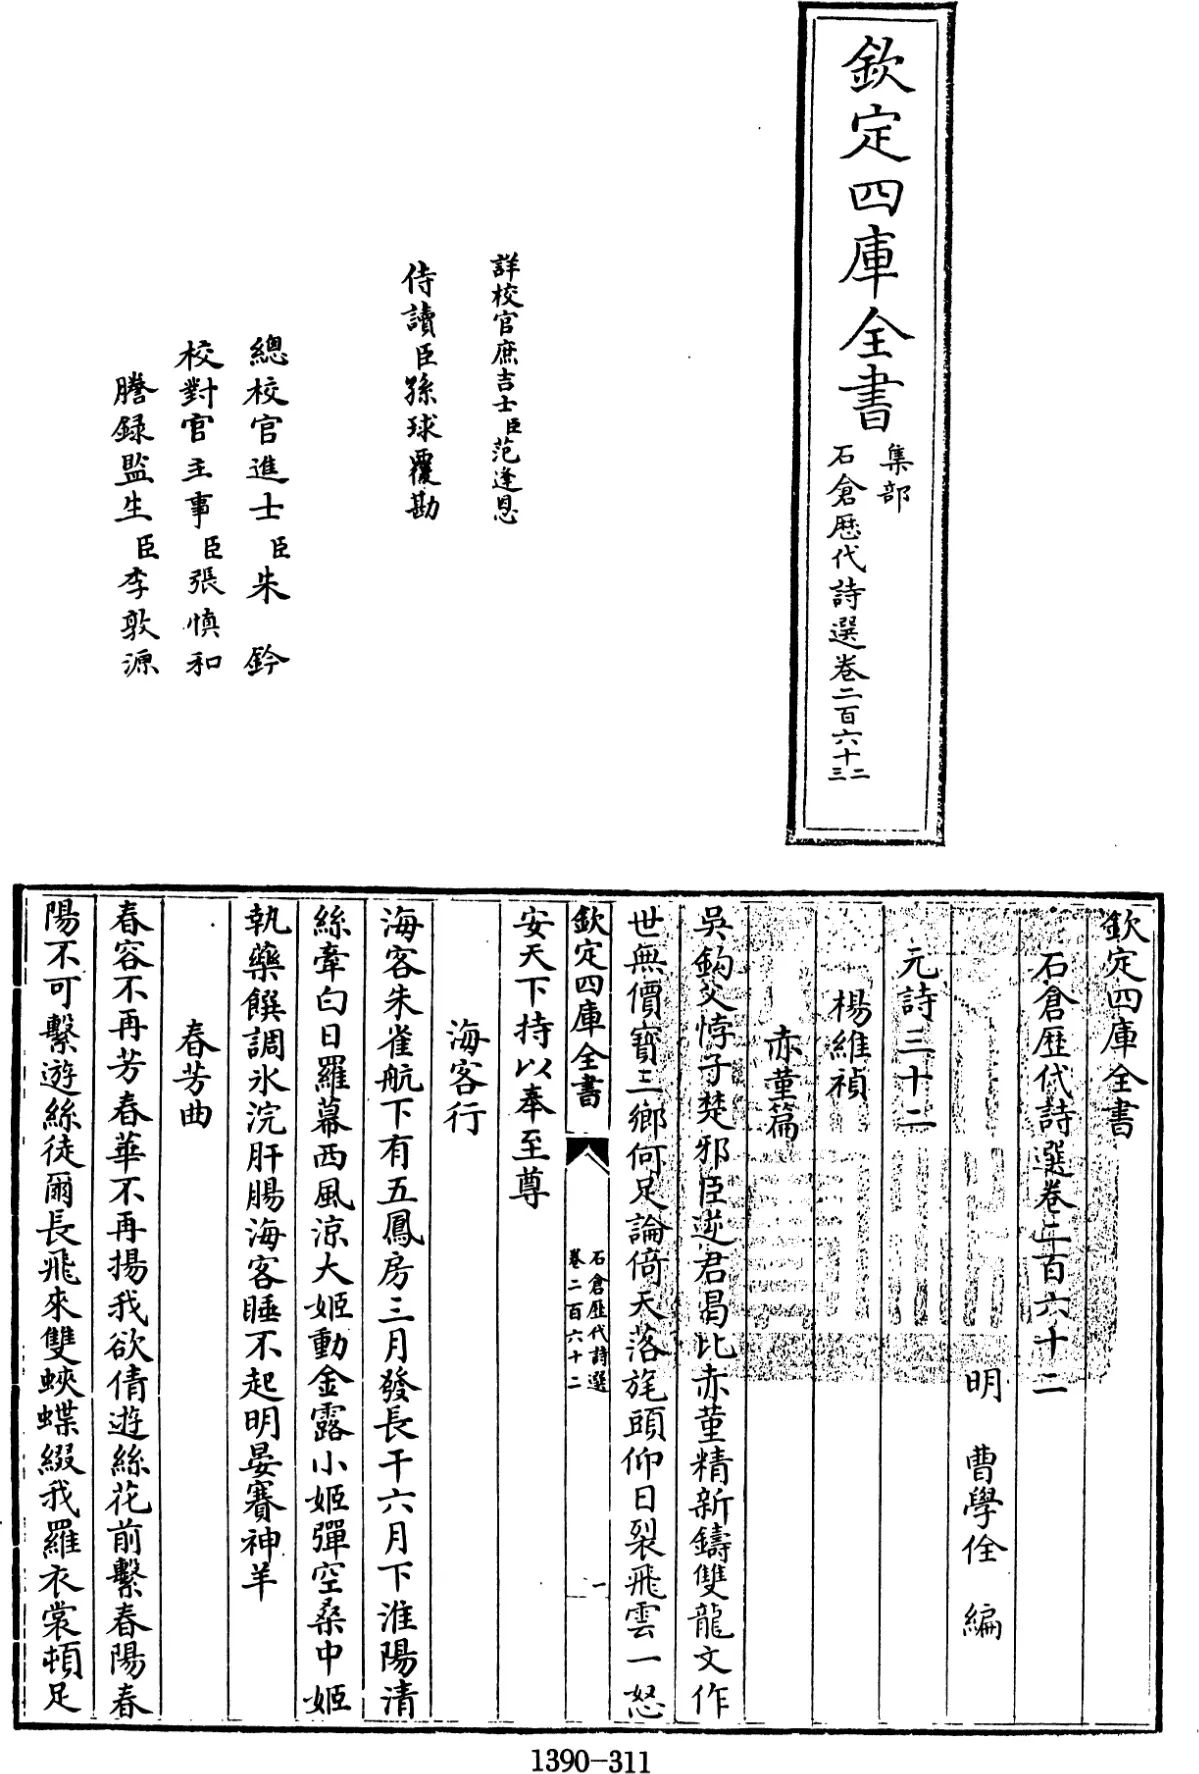 欽定四庫全書
集部
石倉歴代詩選卷二百六十二
三
詳校官庶吉士臣范逢恩
侍讀臣孫球覆勘
總校官進士臣朱鈐
校對官主事臣張慎和
謄録監生臣李敦源
欽定四庫全書
石倉歴代詩選卷二百六十二
明 曹學佺 編
元詩三十二
楊維禎
赤堇篇
吳鈎父悖子楚邪臣逆君曷比赤堇精新鑄雙龍文作
世無價寶三鄉何足論倚天落旄頭仰日裂飛雲一怒
欽定四庫全書
石倉歴代詩選
卷二百六十二
一
安天下持以奉至尊
海客行
海客朱雀航下有五鳳房三月發長干六月下淮陽清
絲牽白日羅幕西風涼大姬動金露小姬彈空桑中姬
執藥饌調氷浣肝腸海客睡不起明晏賽神羊
春芳曲
春容不再芳春華不再揚我欲倩遊絲花前繫春陽春
陽不可繫遊絲徒爾長飛來雙蛺蝶綴我羅衣裳頓足
1390-311